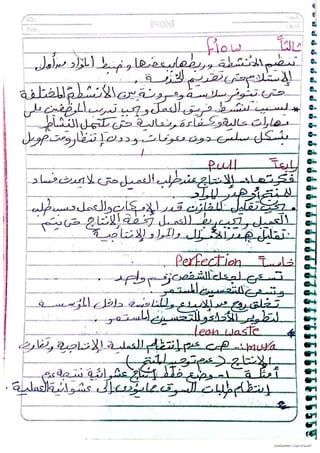 ثالثاً Flow
تنظيم الأنشطة وربطها ببعضها وضبط المواد من أول
الاستلام حتى تقديم الخدمة.
حتى تتوفر سلاسة ومرونة بين الأنشطة المختلفة
لتنشيط فريق العمل ويجب تدرب الموظفين على
مهارات عالية وكفاءة وفعالية حتى يكتمل النشاط
بشكل سلس دون معوقات ودون انتظار وقت طويل
رابعاً Pull
فكرتها: الإنتاج عند طلب العميل حتى لا يحدث فساد
للمنتج أو هدر المواد
يجب تقليل المخازن قدر الإمكان والعمل حسب طلب
العميل، يجب ربط العميل بخطة الإنتاج حتى يتم
تقليل هدر والمواد الإنتاجية
خامساً Perfection
تسعى لجعل الشخص رقم واحد.
وتتبنى التحسين المستمر
تخلق روح من الإبداع والمنافسة داخل المؤسسة
لتطوير الأداء والتحسين المستمر.
lean waste
mura: هي عدم انتظام العملية الإنتاجية وتفاوت
الإنتاج (عدم توحيد المنتج)
أمثلة وضع خطط إنتاج عشوائية نتيجة عدم
انتظام طلبات السوق مما يؤدي إلى عشوائية العملية.